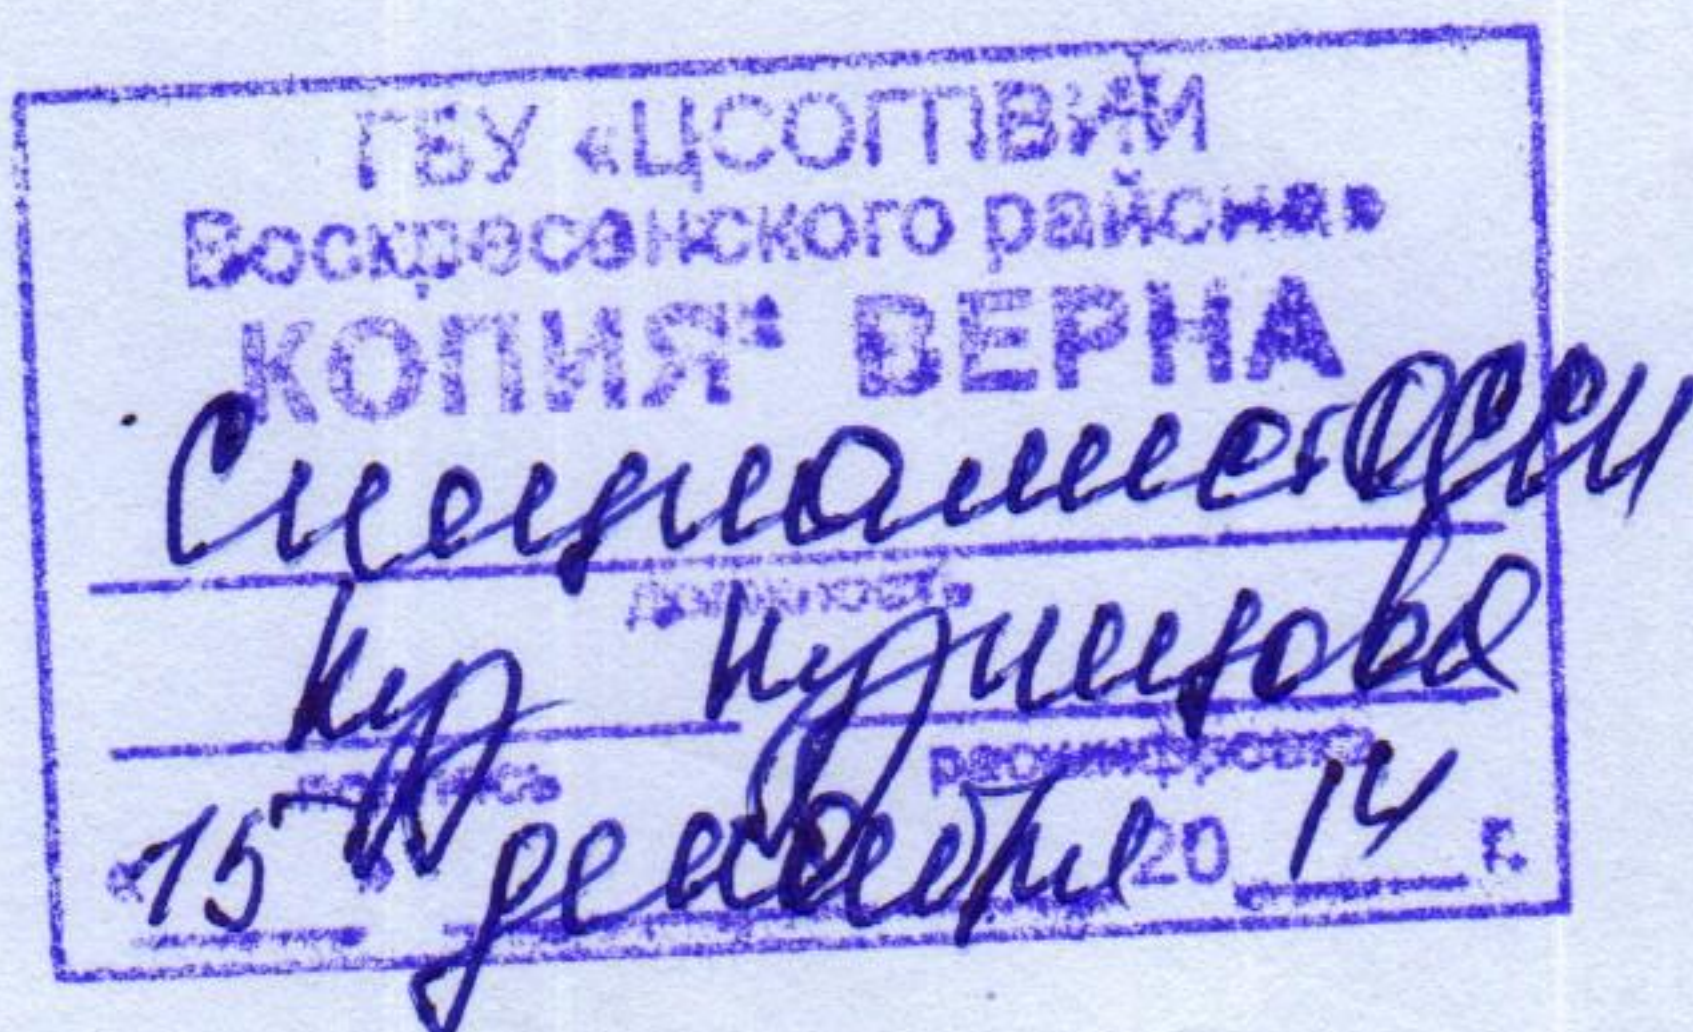 ГБУ «ЦСОГПВИИ
Воскресенского района»
КОПИЯ ВЕРНА
Специалист ОСКИ
должность
Куз Кузнецова
подпись расшифровка
«15» декабря 2014 г.